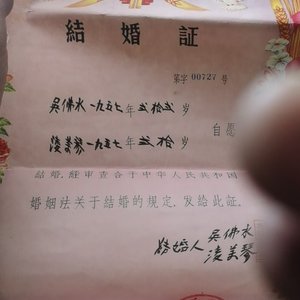 結婚証
第字00727号
吳佛水一九五七年贰拾贰岁
凌美琴一九五七年贰拾岁
自愿
結婚,經审查合于中华人民共和国
婚姻法关于結婚的規定,发給此証。
結婚人 吳佛水
凌美琴